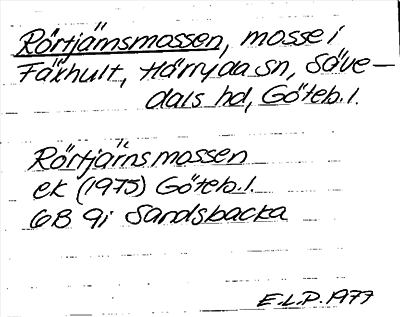 Rörtjärnsmossen, mosse i
Fäxhult, Härryda sn, Säve-
dals hd, Göteb. l.
Rörtjärnsmossen
ek (1975) Göteb. l.
6B 9i Sandsbacka
E.L.P. 1977